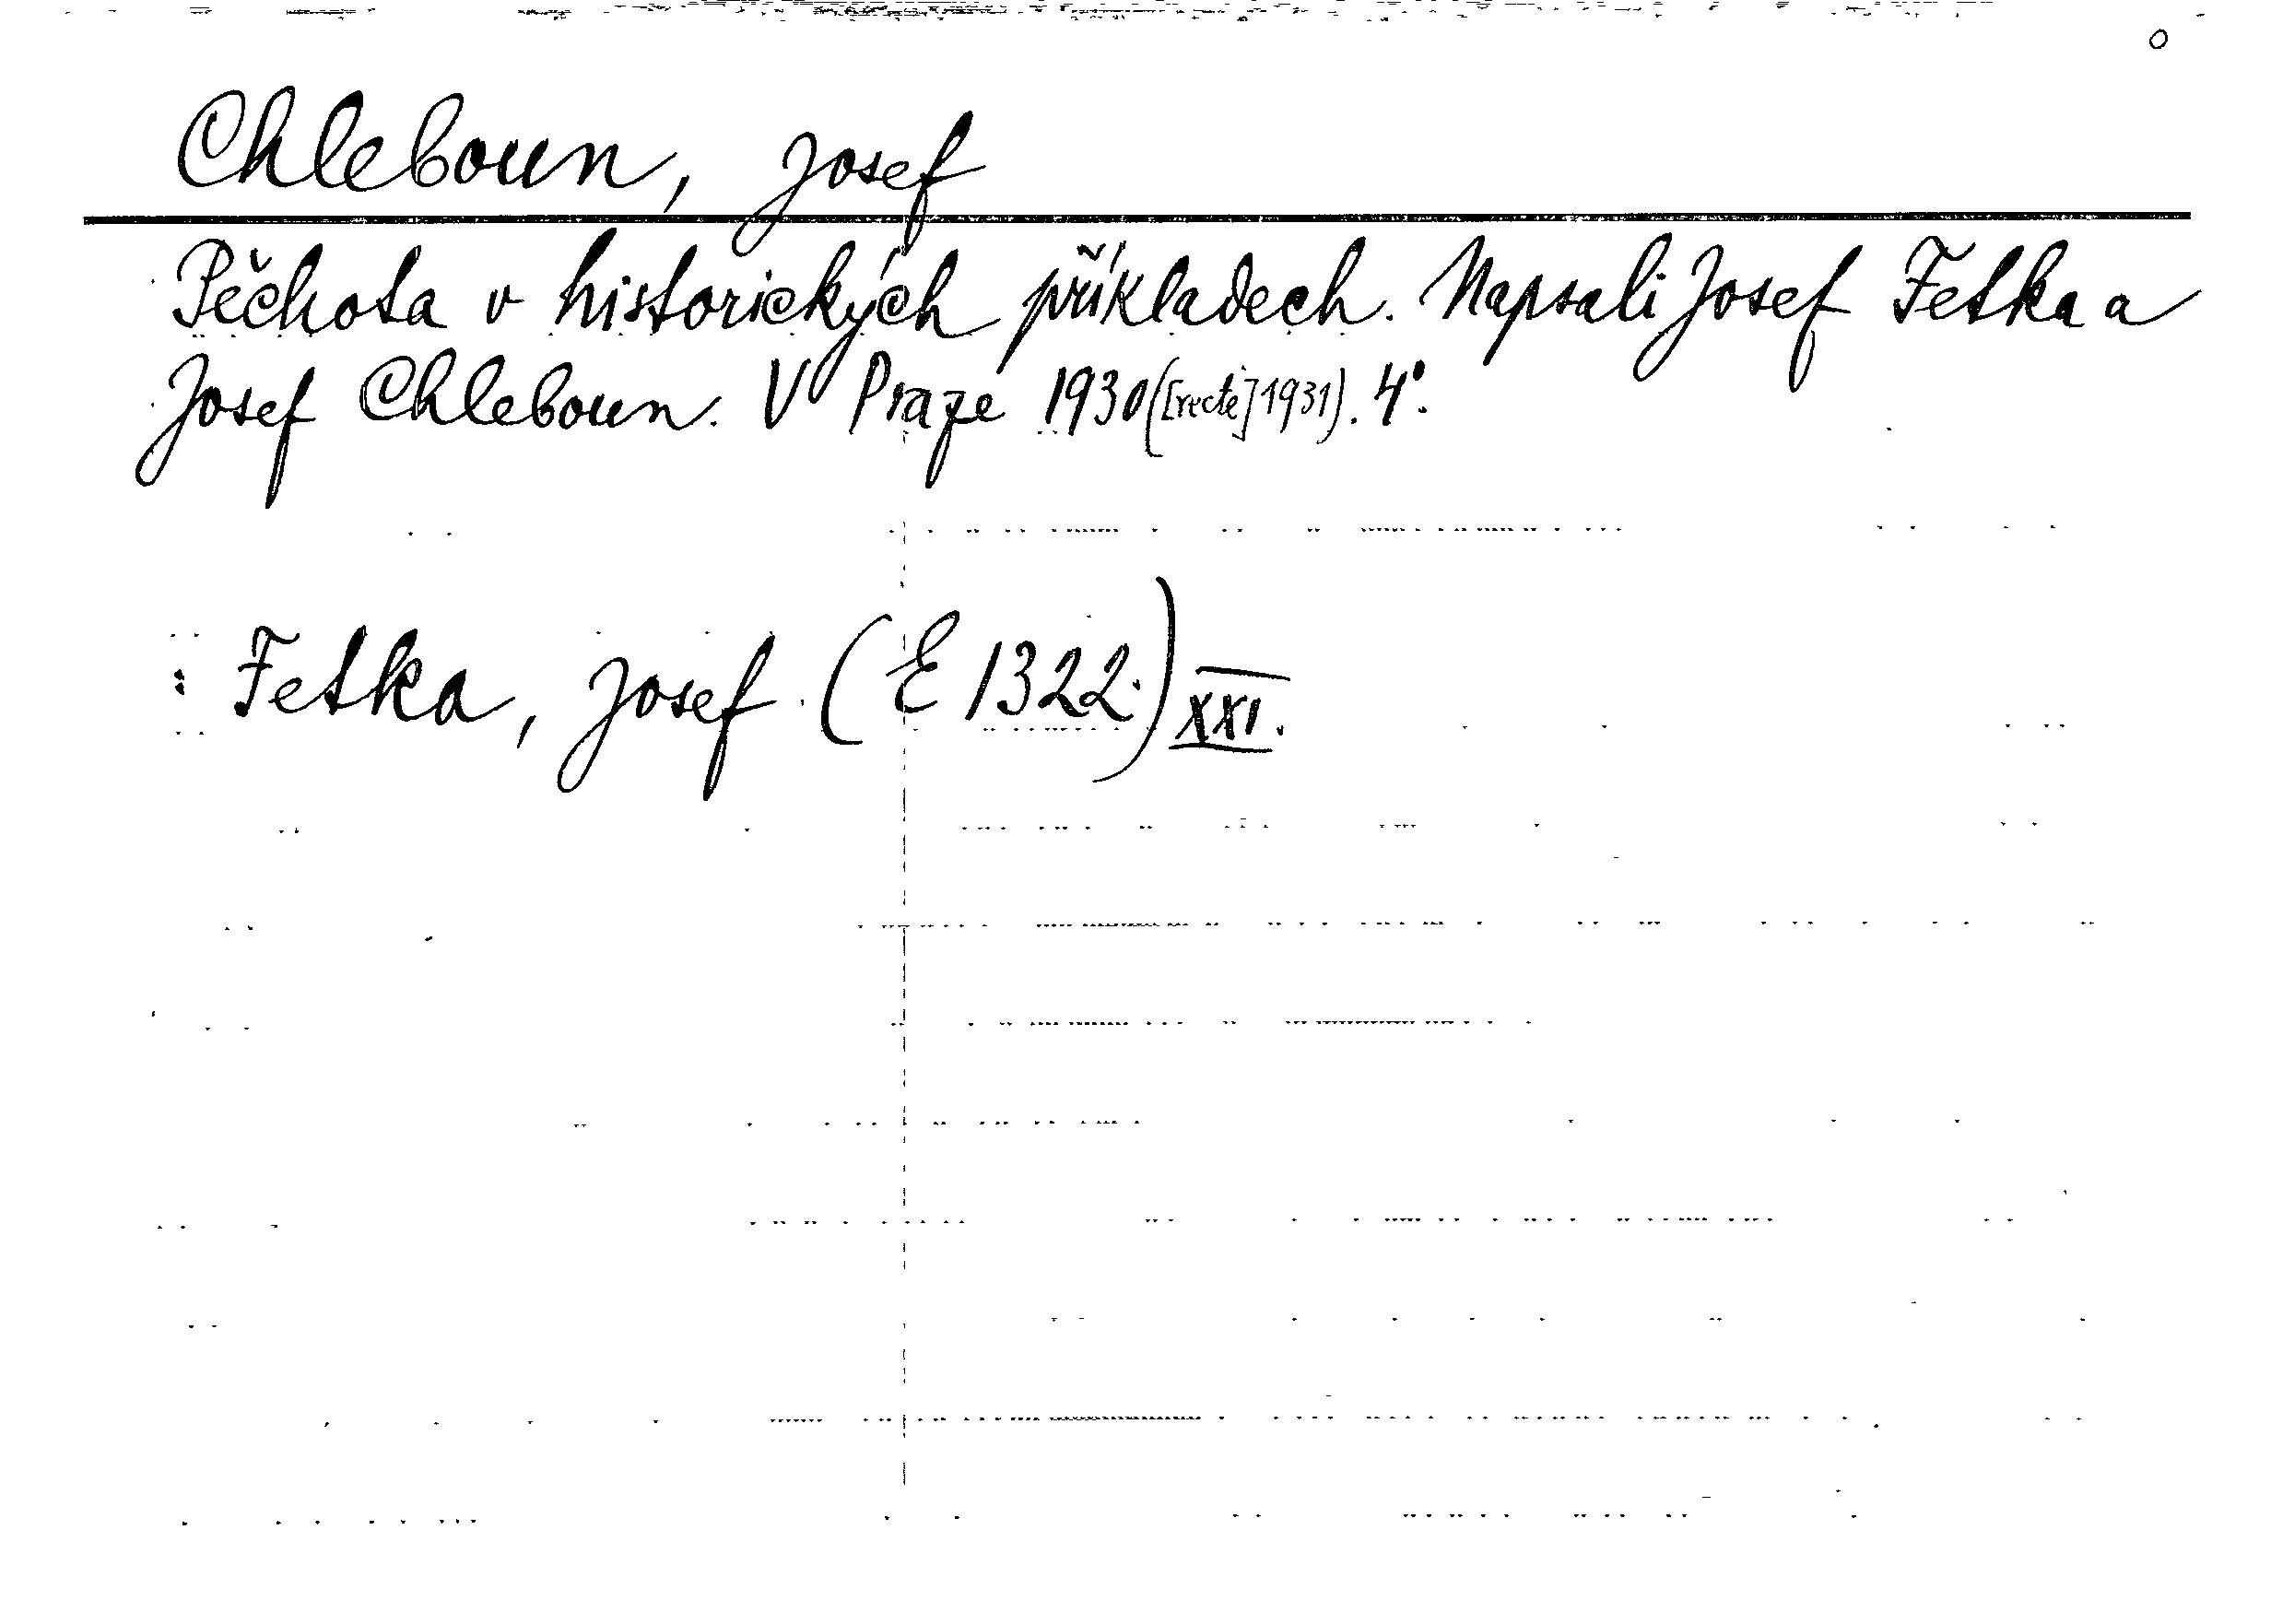 Chleboun, Josef
Pěchota v historických příkladech. Napsali Josef Fetka a
Josef Chleboun. V Praze 1930 ([recte] 1931). 4°.
: Fetka, Josef. (E 1322.) XXI.